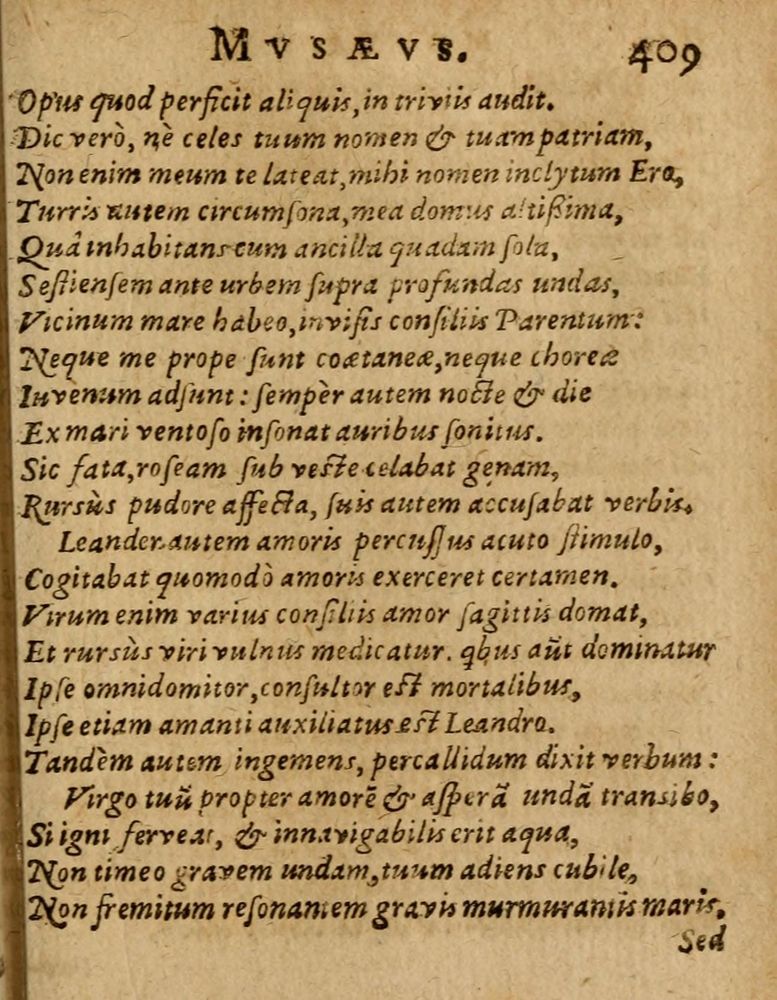 MVSÆVS. 409
Opus quod perficit aliquis, in triviis audit.
Dic verò, nè celes tuum nomen & tuam patriam,
Non enim meum te lateat, mihi nomen inclytum Ero,
Turris autem circumſona, mea domus altißima,
Quâ inhabitans cum ancilla quadam ſola,
Seſtienſem ante urbem ſupra profundas undas,
Vicinum mare habeo, inviſis conſiliis Parentum:
Neque me prope ſunt coætaneæ, neque choreæ
Iuvenum adſunt: ſempèr autem nocte & die
Ex mari ventoſo inſonat auribus ſonitus.
Sic fata, roſeam ſub veſte celabat genam,
Rursùs pudore affecta, ſuis autem accuſabat verbis.
Leander autem amoris percuſſus acuto ſtimulo,
Cogitabat quomodò amoris exerceret certamen.
Virum enim varius conſiliis amor ſagittis domat,
Et rursùs viri vulnus medicatur. qbus aũt dominatur
Ipſe omnidomitor, conſultor eſt mortalibus,
Ipſe etiam amanti auxiliatus eſt Leandro.
Tandèm autem ingemens, percallidum dixit verbum:
Virgo tuũ propter amorẽ & aſperã undã transibo,
Si igni ferveat, & innavigabilis erit aqua,
Non timeo gravem undam, tuum adiens cubile,
Non fremitum reſonantem gravis murmurantis maris.
Sed